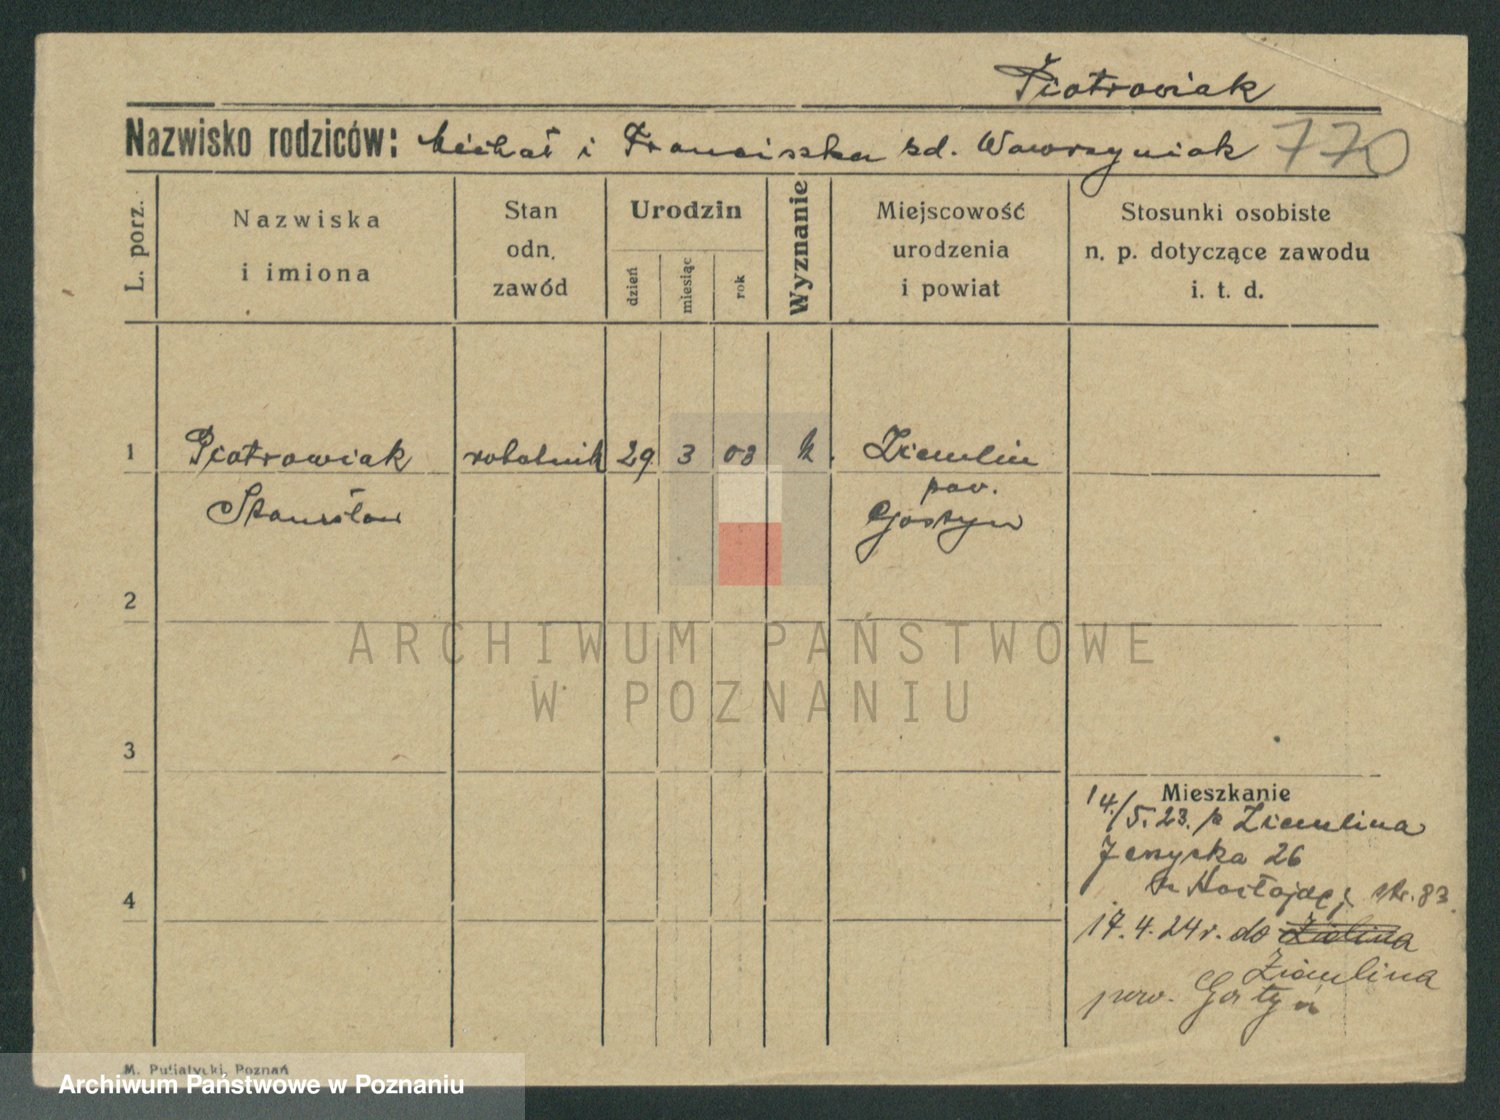 Piotrowiak
Nazwisko rodziców: Michał i Franciszka zd. Wawrzyniak 770
L. porz.
Nazwiska i imiona
Stan odn. zawód
Urodzin
dzień
miesiąc
rok
Wyznanie
Miejscowość urodzenia i powiat
Stosunki osobiste n. p. dotyczące zawodu i. t. d.
1 Piotrowiak robotnik 29 3 03 k. Ziemlin
pow.
Stanisław Gostyn
2
3
Mieszkanie
14./5.23. z Ziemlina
26
4
str. 83.
17.4.24 r. do Zielina
Ziemlina
pow. Gostyń
M. Putiatycki, Poznań
ARCHIWUM PAŃSTWOWE
W POZNANIU
Archiwum Państwowe w Poznaniu